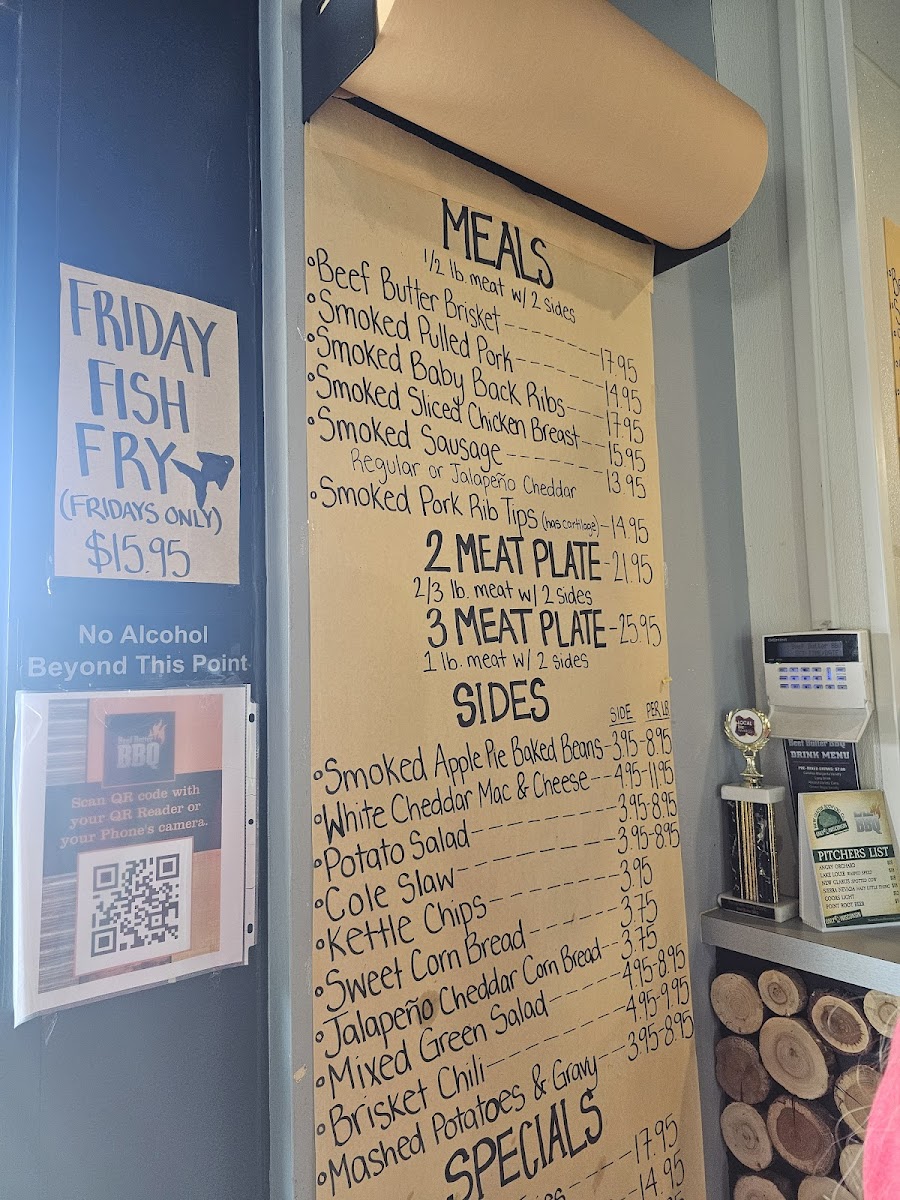 FRIDAY
FISH
FRY
(FRIDAYS ONLY)
$15.95
No Alcohol
Beyond This Point
BBQ
Scan QR code with
your QR Reader or
your Phone's camera.
MEALS
1/2 lb. meat w/ 2 sides
°Beef Butter Brisket ------ 17.95
°Smoked Pulled Pork ------ 14.95
°Smoked Baby Back Ribs --- 17.95
°Smoked Sliced Chicken Breast -- 15.95
°Smoked Sausage -------- 13.95
Regular or Jalapeño Cheddar
°Smoked Pork Rib Tips (has cartilage) - 14.95
2 MEAT PLATE - 21.95
2/3 lb. meat w/ 2 sides
3 MEAT PLATE - 25.95
1 lb. meat w/ 2 sides
SIDES
SIDE PER LB
°Smoked Apple Pie Baked Beans - 3.95 - 8.95
°White Cheddar Mac & Cheese -- 4.95 - 11.95
°Potato Salad -------- 3.95 - 8.95
°Cole Slaw -------- 3.95 - 8.95
°Kettle Chips -------- 3.95
°Sweet Corn Bread ------ 3.75
°Jalapeño Cheddar Corn Bread -- 3.75
°Mixed Green Salad ------ 4.95 - 8.95
°Brisket Chili -------- 4.95 - 9.95
°Mashed Potatoes & Gravy --- 3.95 - 8.95
SPECIALS
17.95
14.95
LOCAL
Beef Butter BBQ
DRINK MENU
BBQ
PITCHERS LIST
ANGRY ORCHARD
LAKE LOUIE WARPED SPEED
NEW GLARUS SPOTTED COW
SIERRA NEVADA HAZY LITTLE THING
COORS LIGHT
POINT ROOT BEER